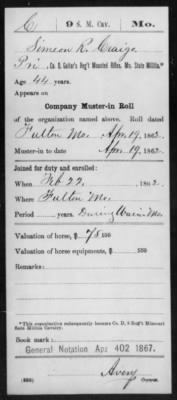 C 9 S. M. Cav. Mo.
Simeon R. Craige
Pri, Co. D, Guitar's Reg't Mounted Rifles, Mo. State Militia.*
Age 44 years.
Appears on
Company Muster-in Roll
of the organization named above. Roll dated
Fulton Mo. Apr. 19, 1862.
Muster-in to date Apr. 19, 1862.
Joined for duty and enrolled:
When Feb 22, 1862.
Where Fulton Mo.
Period years. During War in Mo.
Valuation of horse, $ 75 100
Valuation of horse equipments, $ 100
Remarks:
*This organization subsequently became Co. D, 9 Reg't Missouri
State Militia Cavalry.
Book mark:
General Notation Apr 402 1867.
Avery
Copyist.